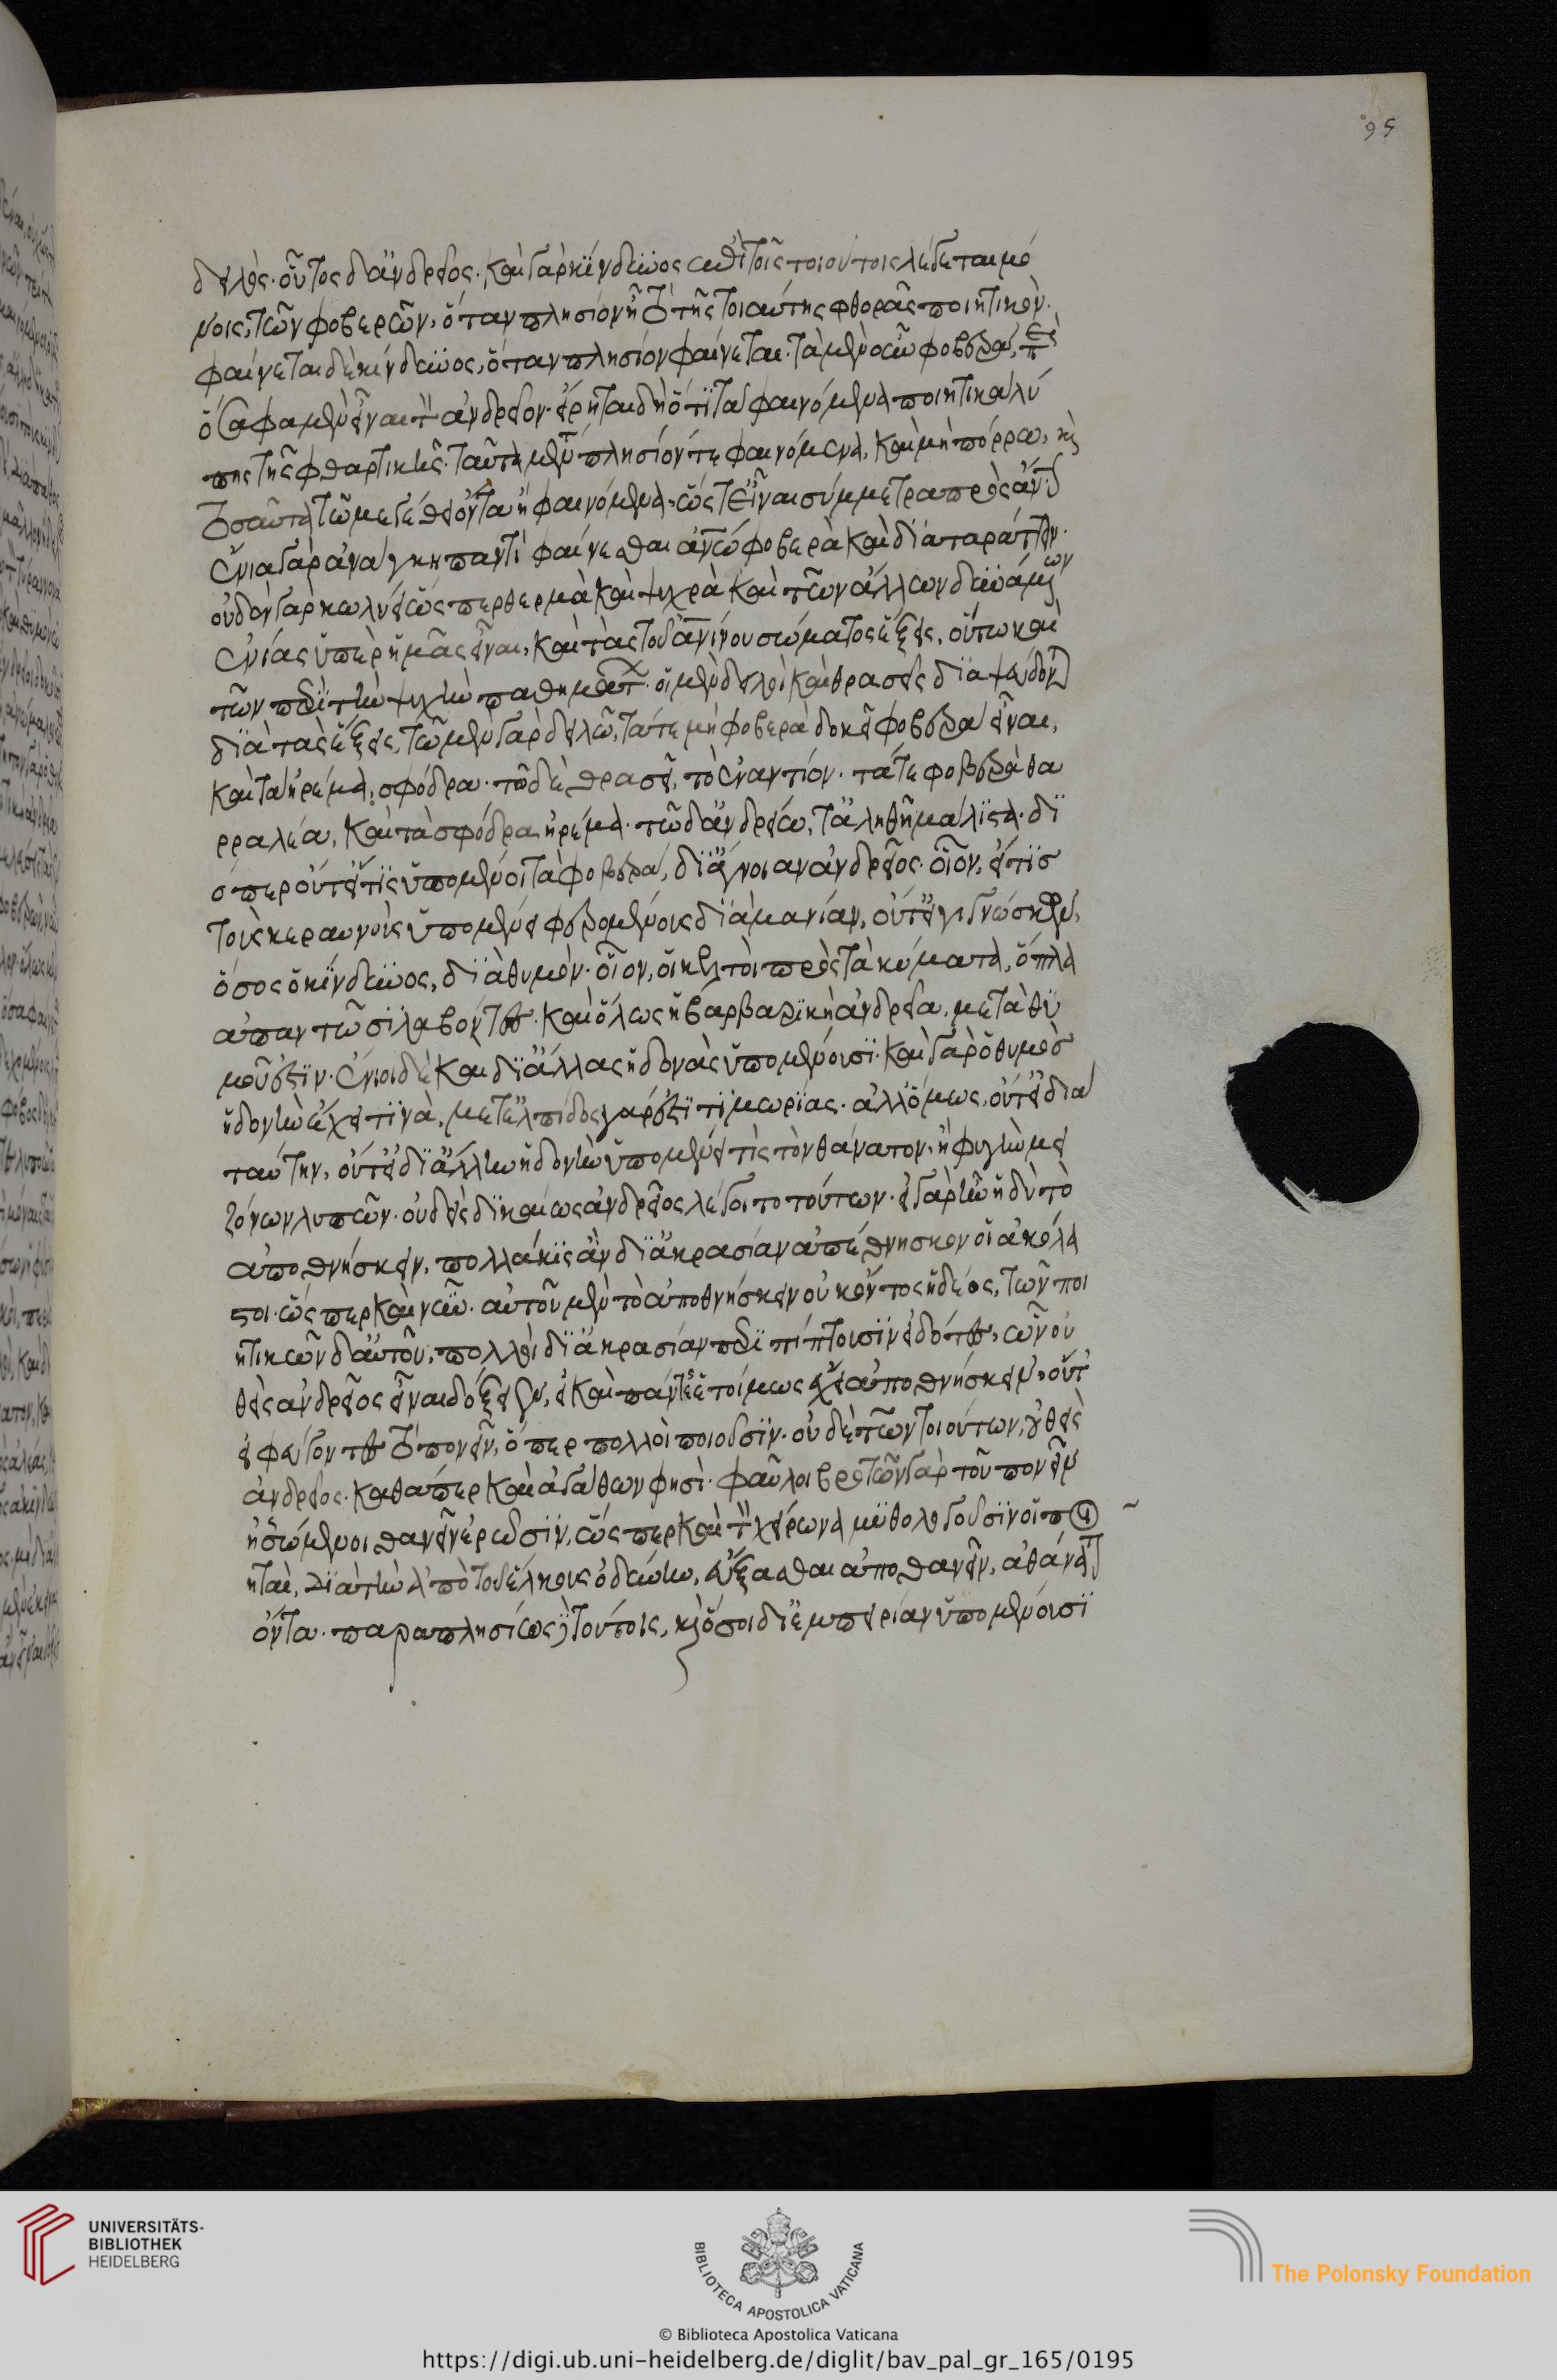 δειλὸς· οὗτος δ' ἀνδρεῖος. καὶ γὰρ κίνδυνος ἐπὶ τοῖς τοιούτοις λέγεται μό
νοις, τῶν φοβερῶν, ὅταν πλησίον ᾖ τὸ τῆς τοιαύτης φθορᾶς ποιητικὸν.
φαίνεται δὲ κίνδυνος, ὅταν πλησίον φαίνεται. τὰ μὲν οὖν φοβερὰ, περὶ
ὅσα φαμὲν εἶναι τὸν ἀνδρεῖον· εἴρηται δὴ ὅτι τὰ φαινόμενα ποιητικὰ λύ
πης τῆς φθαρτικῆς. ταῦτα μέντοι πλησίον τε φαινόμενα, καὶ μὴ πόρρω, καὶ
τοσαῦτα τῷ μεγέθει ὄντα ἢ φαινόμενα, ὥστε εἶναι σύμμετρα πρὸς ἄνθρωπον
ἔνια γὰρ ἀνάγκη παντὶ φαίνεσθαι ἀνθρώπῳ φοβερὰ καὶ διαταράττειν.
οὐδὲν γὰρ κωλύει ὥσπερ θερμὰ καὶ ψυχρὰ καὶ τῶν ἄλλων δυνάμεων
ἐνίας ὑπὲρ ἡμᾶς εἶναι, καὶ τὰς τοῦ ἀνθρωπίνου σώματος ἕξεις, οὕτω καὶ
τῶν περὶ τὴν ψυχὴν παθημάτων. οἱ μὲν δειλοὶ καὶ θρασεῖς διαψεύδονται
διὰ τὰς ἕξεις, τῷ μὲν γὰρ δειλῷ, τά τε μὴ φοβερὰ δοκεῖ φοβερὰ εἶναι,
καὶ τὰ ἠρέμα, σφόδρα. τῷ δὲ θρασεῖ, τὸ ἐναντίον. τά τε φοβερὰ θα
ρραλέα, καὶ τὰ σφόδρα ἠρέμα. τῷ δ' ἀνδρείῳ, τἀληθῆ μάλιστα. δι
όπερ οὔτ' εἴ τις ὑπομένοι τὰ φοβερὰ, δι' ἄγνοιαν ἀνδρεῖος. οἷον, εἴ τις
τοὺς κεραυνοὺς ὑπομένει φερομένους διὰ μανίαν, οὔτ' εἰ γιγνώσκων,
ὅσος ὁ κίνδυνος, διὰ θυμὸν. οἷον, οἱ κελτοὶ πρὸς τὰ κύματα, ὅπλα
ἀπαντῶσι λαβόντες. καὶ ὅλως ἡ βαρβαρικὴ ἀνδρεία, μετὰ θυ
μοῦ ἐστιν. ἔνιοι δὲ καὶ δι' ἄλλας ἡδονὰς ὑπομένουσι. καὶ γὰρ ὁ θυμὸς
ἡδονὴν ἔχει τινὰ, μετ' ἐλπίδος γάρ ἐστι τιμωρίας. ἀλλ' ὅμως, οὔτ' εἰ διὰ
ταύτην, οὔτ' εἰ δι' ἄλλην ἡδονὴν ὑπομένει τὶς τὸν θάνατον, ἢ φυγὴν μει
ζόνων λυπῶν. οὐδεὶς δικαίως ἀνδρεῖος λέγοιτο τούτων. εἰ γὰρ ἦν ἡδὺ τὸ
ἀποθνήσκειν, πολλάκις ἂν δι' ἀκρασίαν ἀπέθνησκον οἱ ἀκόλα
στοι. ὥσπερ καὶ νῦν. αὐτοῦ μὲν τὸ ἀποθνήσκειν οὐκ ὄντος ἡδέος, τῶν ποι
ητικῶν δ' αὐτοῦ, πολλοὶ δι' ἀκρασίαν περιπίπτουσιν εἰδότες, ὧν οὐ
θεὶς ἀνδρεῖος εἶναι δόξειεν, εἰ καὶ πάντες ἑτοίμως ἔχει ἀποθνήσκειν, οὔτ'
εἰ φεύγοντες τὸ πονεῖν, ὅπερ πολλοὶ ποιοῦσιν. οὐδὲ τῶν τοιούτων, οὐθεὶς
ἀνδρεῖος. καθάπερ καὶ ἀγάθων φησὶ. φαῦλοι βροτῶν γὰρ τοῦ πονεῖν
ἡσσώμενοι θανεῖν ἐρῶσιν, ὥσπερ καὶ τὸν χείρωνα μυθολογοῦσιν οἱ ποι
ηταὶ, διὰ τὴν ἀπὸ τοῦ ἕλκους ὀδύνην, εὔξασθαι ἀποθανεῖν, ἀθάνατον
ὄντα. παραπλησίως δὲ τούτοις, καὶ ὅσοι δι' ἐμπειρίαν ὑπομένουσι
UNIVERSITÄTS-
BIBLIOTHEK
HEIDELBERG
BIBLIOTECA APOSTOLICA VATICANA
The Polonsky Foundation
© Biblioteca Apostolica Vaticana
https://digi.ub.uni-heidelberg.de/diglit/bav_pal_gr_165/0195